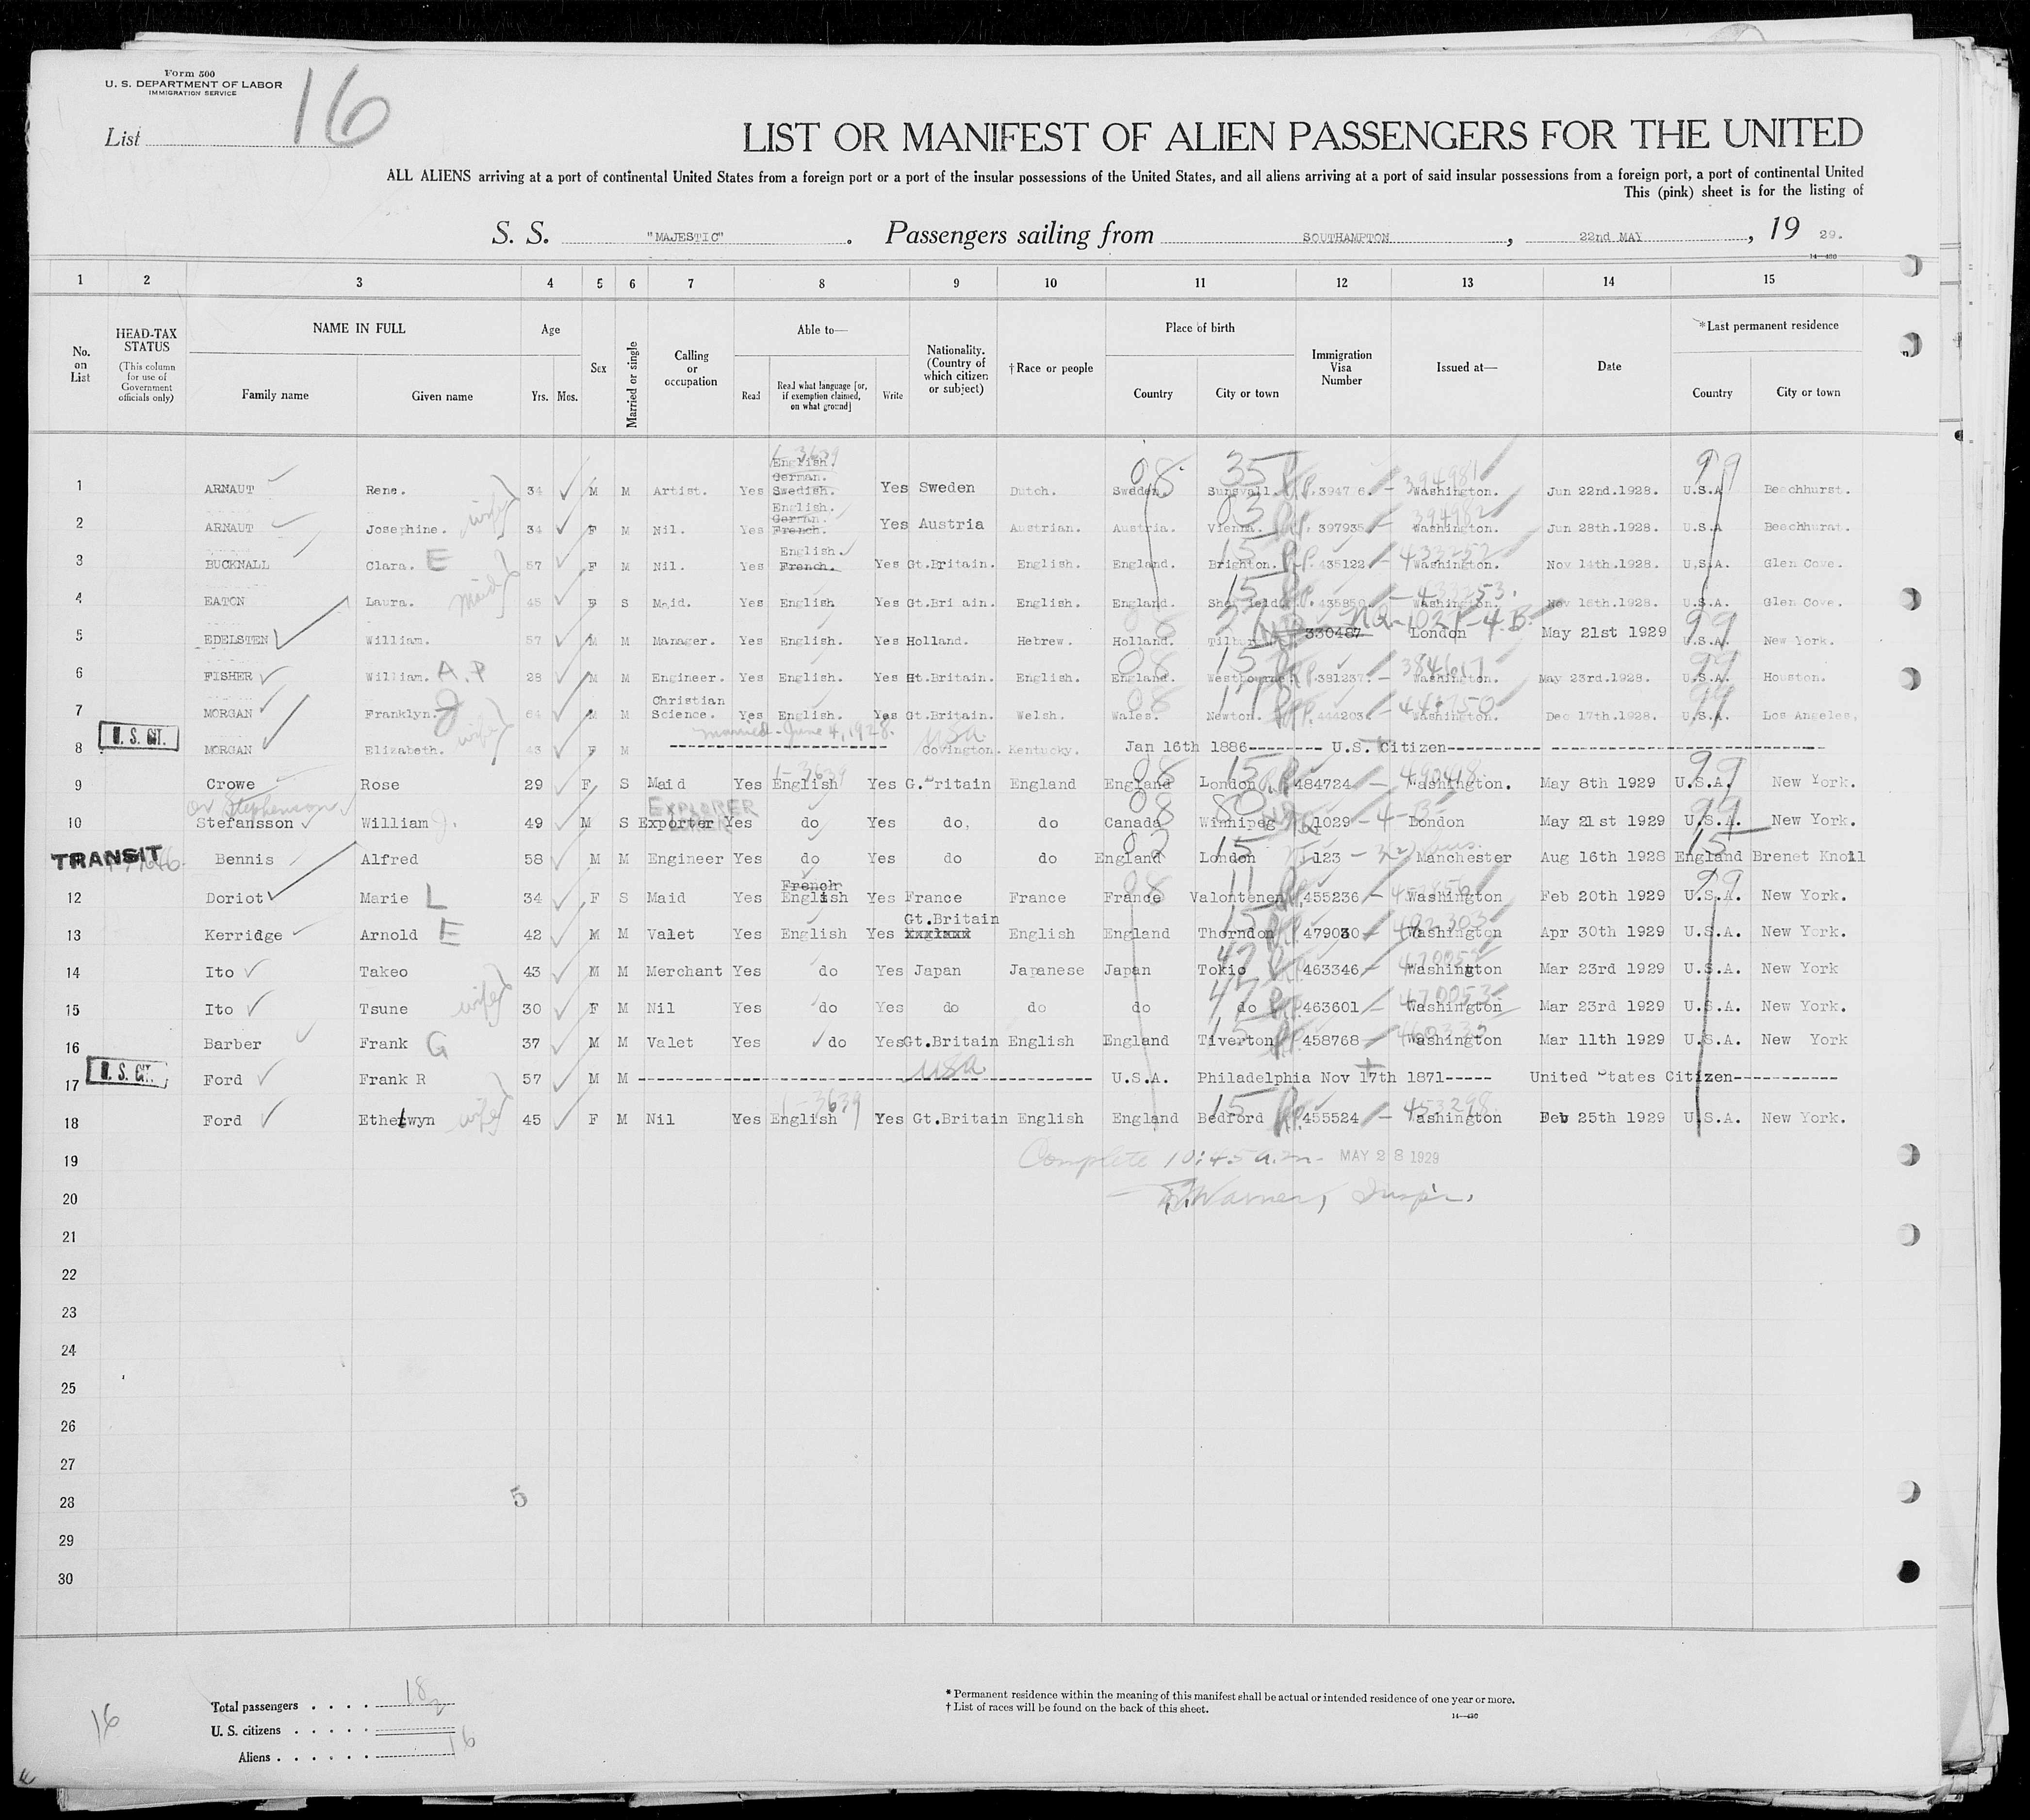 Form 500
U. S. DEPARTMENT OF LABOR
IMMIGRATION SERVICE
16
List
LIST OR MANIFEST OF ALIEN PASSENGERS FOR THE UNITED
ALL ALIENS arriving at a port of continental United States from a foreign port or a port of the insular possessions of the United States, and all aliens arriving at a port of said insular possessions from a foreign port, a port of continental United
This (pink) sheet is for the listing of
S. S. "MAJESTIC" . Passengers sailing from SOUTHAMPTON , 22nd MAY , 19 29.
14—430
1 2 3 4 5 6 7 8 9 10 11 12 13 14 15
No. on List
HEAD-TAX STATUS
(This column for use of Government officials only)
NAME IN FULL
Family name Given name
Age
Yrs. Mos.
Sex
Married or single
Calling or occupation
Able to—
Read Read what language [or, if exemption claimed, on what ground] Write
Nationality. (Country of which citizen or subject)
†Race or people
Place of birth
Country City or town
Immigration Visa Number
Issued at—
Date
*Last permanent residence
Country City or town
1-3639
English.
German.
1 ARNAUT Rene. 34 M M Artist. Yes Swedish. Yes Sweden Dutch. 08 Sweden. 35 Sunsvall. P.P. 394981 Washington. Jun 22nd.1928. 99 U.S.A Beechhurst.
English.
German.
2 ARNAUT Josephine. wife 34 F M Nil. Yes French. Yes Austria Austrian. Austria. 03 Vienna. 397935 394982 Washington. Jun 28th.1928. U.S.A Beechhurst.
English.
3 BUCKNALL Clara. E 57 F M Nil. Yes French. Yes Gt.Britain. English. England. 15 Brighton. P.P. 435122 433252 Washington. Nov 14th.1928. U.S.A. Glen Cove.
4 EATON Laura. Maid 45 F S Maid. Yes English Yes Gt.Bri ain. English. England. 15 Sheffield. 435850 433253. Washington. Nov 16th.1928. U.S.A. Glen Cove.
5 EDELSTEN William. 57 M M Manager. Yes English. Yes Holland. Hebrew. Holland. 330487 1021-4.B. London May 21st 1929 99 U.S.A. New York.
6 FISHER William. A.P 28 M M Engineer. Yes English. Yes Gt.Britain. English. 08 England. 15 Westbourne P.P. 381237. 384617 Washington. May 23rd.1928. 99 U.S.A. Houston.
Christian
7 MORGAN Franklyn. J 64 M M Science. Yes English. Yes Gt.Britain. Welsh. 08 Wales. 17 Newton. P.P. 444203. 443750 Washington. Dec 17th.1928. 99 U.S.A. Los Angeles.
married - June 4, 1928. USA
U. S. CIT.
8 MORGAN Elizabeth. wife 43 F M Covington. Kentucky. Jan 16th 1886-------- U.S. Citizen----------
1-3639
9 Crowe Rose 29 F S Maid Yes English Yes G.Britain England 08 England 15 London P.P. 484724 490418 Washington. May 8th 1929 99 U.S.A. New York.
or Stephenson EXPLORER
10 Stefansson William J. 49 M S Exporter Yes do Yes do, do 08 Canada 80 Winnipeg 1029-4-B London May 21st 1929 99 U.S.A. New York.
TRANSIT Bennis Alfred 58 M M Engineer Yes do Yes do do 02 England 15 London 123 Manchester Aug 16th 1928 15 England Brenet Knoll
French
12 Doriot Marie L 34 F S Maid Yes English Yes France France 08 France 11 Valontenen 455236 Washington Feb 20th 1929 99 U.S.A. New York.
Gt.Britain
13 Kerridge Arnold E 42 M M Valet Yes English Yes xxxlxxx English England 15 Thorndon 479030 492303 Washington Apr 30th 1929 U.S.A. New York.
14 Ito Takeo 43 M M Merchant Yes do Yes Japan Japanese Japan 47 Tokio 463346 470052 Washington Mar 23rd 1929 U.S.A. New York
15 Ito Tsune wife 30 F M Nil Yes do Yes do do do 47 do P.P. 463601 470053 Washington Mar 23rd 1929 U.S.A. New York.
16 Barber Frank G 37 M M Valet Yes do Yes Gt.Britain English England 15 Tiverton 458768 Washington Mar 11th 1929 U.S.A. New York
U. S. CIT. USA
17 Ford Frank R 57 M M U.S.A. Philadelphia Nov 17th 1871----- United States Citizen-----------
1-3639
18 Ford Ethelwyn wife 45 F M Nil Yes English Yes Gt.Britain English England 15 Bedford P.P. 455524 453298 Washington Feb 25th 1929 U.S.A. New York.
19 Complete 10:45 a.m. MAY 28 1929
20 Warner, Inspr.
21
22
23
24
25
26
27
28 5
29
30
16
Total passengers . . . . 18
U. S. citizens . . . . . 2
Aliens . . . . . . 16
* Permanent residence within the meaning of this manifest shall be actual or intended residence of one year or more.
† List of races will be found on the back of this sheet.
14—430